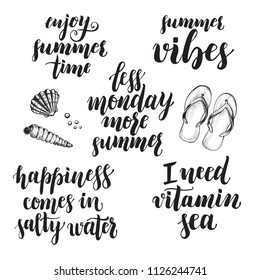 enjoy
summer
time
summer
vibes
less
monday
more
summer
happiness
comes in
salty water
I need
vitamin
sea
www.shutterstock.com · 1126244741